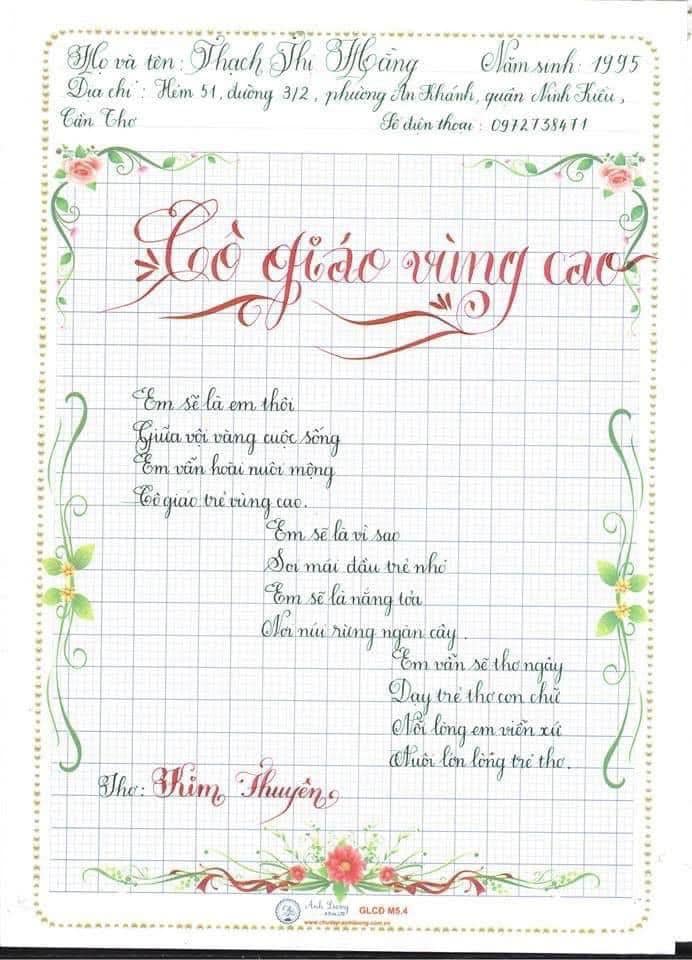 Họ và tên: Thạch Thị Hằng Năm sinh: 1995
Địa chỉ: Hẻm 51, đường 3/2, phường An Khánh, quận Ninh Kiều,
Cần Thơ Số điện thoại: 0972738471
Cô giáo vùng cao
Em sẽ là em thôi
Giữa vội vàng cuộc sống
Em vẫn hoài nuôi mộng
Cô giáo trẻ vùng cao.
Em sẽ là vì sao
Soi mái đầu trẻ nhỏ
Em sẽ là nắng tỏa
Nơi núi rừng ngàn cây.
Em vẫn sẽ thơ ngây
Dạy trẻ thơ con chữ
Nỗi lòng em viễn xứ
Nuôi lớn lòng trẻ thơ.
Thơ: Kim Thuyên
Ánh Dương
GLCD M5.4